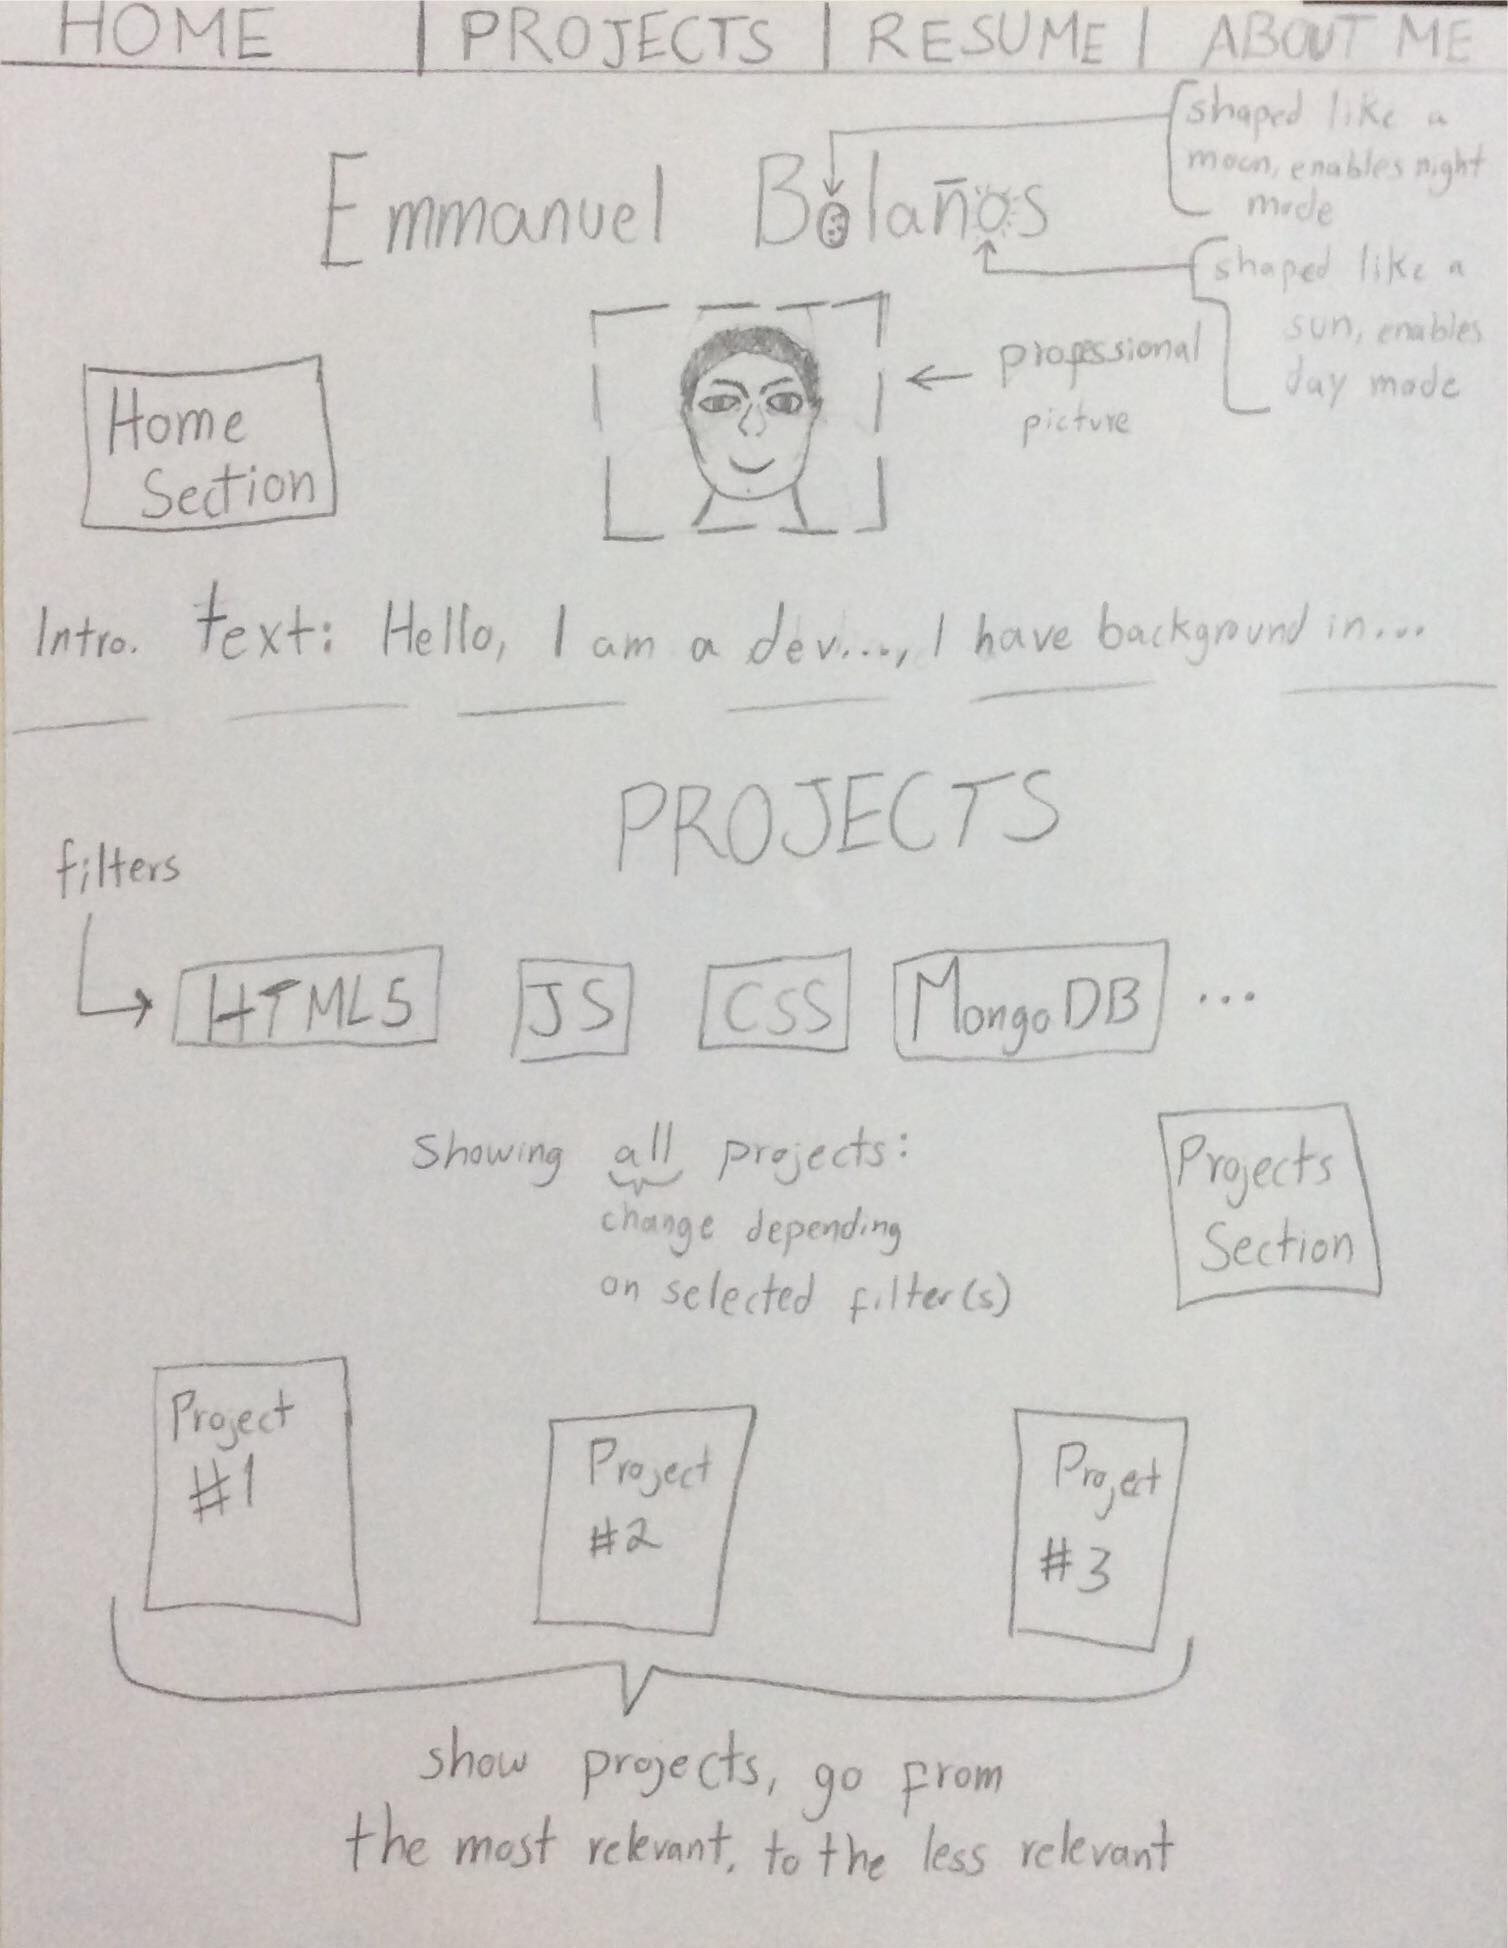 HOME | PROJECTS | RESUME | ABOUT ME
shaped like a
moon, enables night
mode
Emmanuel Bolaños
shaped like a
sun, enables
day mode
professional
picture
Home
Section
Intro. text: Hello, I am a dev..., I have background in...
PROJECTS
filters
HTML5 JS CSS MongoDB ...
Showing all projects:
change depending
on selected filter(s)
Projects
Section
Project
#1
Project
#2
Project
#3
show projects, go from
the most relevant, to the less relevant